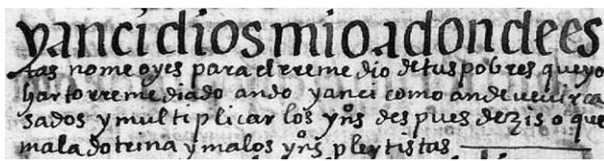 yancidiosmioadondees
tas nomeoyes para el rremedio detus pobres queyo
harto rremediado ando yanci como andeveuir ca
sados y multiplicar los yn̄os despues dezis o que
mala dotrina y malos yn̄os pleytistas